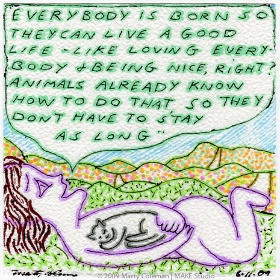 "EVERYBODY IS BORN SO
THEYCAN LIVE A GOOD
LIFE - LIKE LOVING EVERY
BODY & BEING NICE, RIGHT?
ANIMALS ALREADY KNOW
HOW TO DO THAT, SO THEY
DON'T HAVE TO STAY
AS LONG"
© 2009 Marty Coleman | MAKE Studio